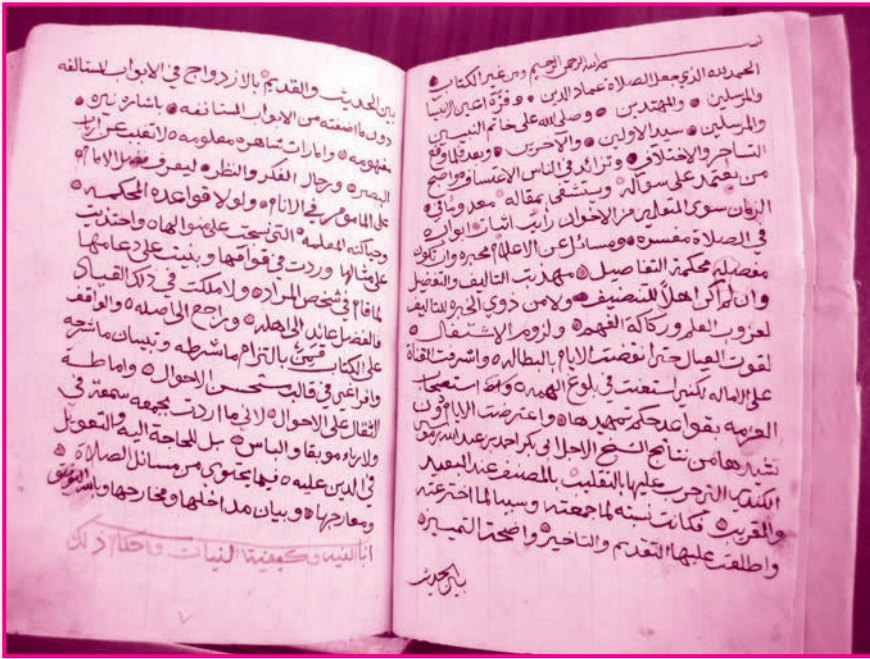 بسم الله الرحمن الرحيم
الحمد لله الذي جعل الصلاة عماد الدين وقرة اعين الانبيا
والمرسلين والمهتدين وصلى الله على خاتم النبيين
والمرسلين سيد الاولين والآخرين وبعد فلما وقع
التشاجر والاختلاف وتزائد في الناس الاعتساف واضح
من يعتمد على سوآله ويستشفى بمقاله معدوما في
الزمان سوى المتعلم من الاخوان رايت اثبات ابواب
في الصلاة مفسره ومسائل عن الاعلام محبره وان تكون
مفصله محكمة التفاصيل مهذبة التاليف والتفضيل
وان لم اكن اهلا للتصنيف ولا من ذوي الخبره للتاليف
لعزوب العلم وركاكة الفهم ولزوم الاشتغال
لقوت العيال حتى انقضت الايام بالبطاله واشرفت القناة
على الاماله لكني استعنت في بلوغ الهمه
العزمه بقواعد حكم تمهدها واعترضت الايام دون
تشيدها من نتائج الشيخ الاجل ابي بكر احمد بن عبد الله بن موسى
الكندي عليها بالتقليب بالمصنف عند المبعد
والمقرب فكانت نسبه لما جمعته وسببا لما اخترعته
واطلقت عليها التقديم والتاخير واضحة التمييز
بين الحديث
بين الحديث والقديم بالازدواج في الابواب المستالفه
دون ما اضفته من الابواب المستانفه باشارة نيره
مفهومه وامارات شاهره معلومه لا تغيب عن ارباب
البصر ورجال الفكر والنظر ليعرف فضل الامام
على الماموم في الانام ولولا قواعده المحكمه
وحياكته المعلمه التي نسجت على منوالها واحتذيت
على مثالها وردت في قوآمها وبنيت على دعامها
لما قام في شخص المراده ولا ملكت في ذلك القياد
فالفضل عائد الى اهله وراجع الى اصله والواقف
على الكتاب قمين بالتزام ما شرطه وتبيان ما شرحه
وافراغي في قالب مستحسن الاحوال واماطة
الثقال على الاحوال لاني ما اردت بجمعه سمعة في
ولا رياء موبقا والباس بل للحاجة اليه والتعويل
في الدين عليه فيما يحتوي من مسائل الصلاة
ومعارجها وبيان مداخلها ومخارجها وبالله التوفيق
النيه وكيفية النيات واحكام ذلك
٧